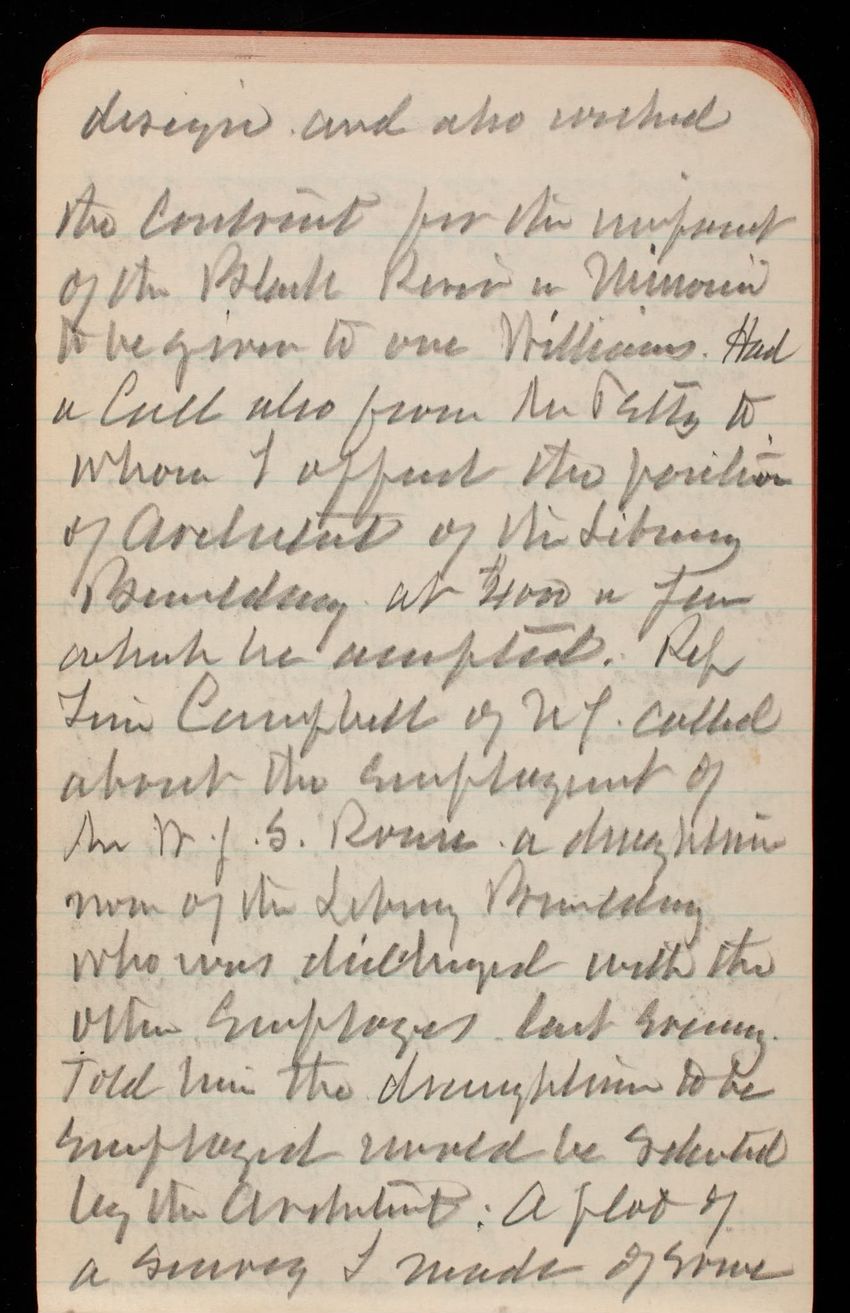 design and also wished
the Contract for the improvt
of the Black River in Missouri
to be given to one Williams. Had
a Call also from Mr Peltz to
whom I offered the position
of Architect of the Library
Building at $4000 a year
which he accepted. Rep
Tim Campbell of NY. called
about the Employment of
Mr W. J. S. a draughtsm
man of the Library Building
who was discharged with the
other Employees last Evening.
Told him the draughtsmen to be
Employed would be Selected
by the Architect: A plot of
a Survey I made of Some